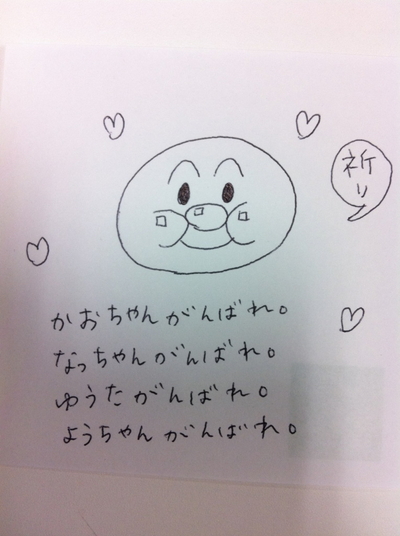 祈り
かおちゃんがんばれ。
なっちゃんがんばれ。
ゆうたがんばれ。
ようちゃんがんばれ。